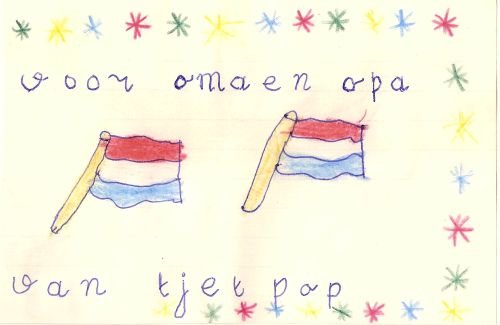 voor oma en opa
van tjet pop